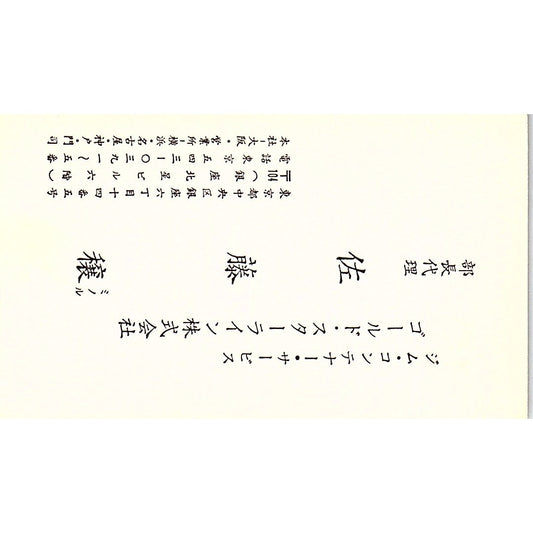 ジム・コンテナー・サービス
ゴールド・スターライン株式会社
部長代理
佐藤穣
ミノル
東京都中央区銀座六丁目十四番五号
〒104（銀座北星ビル六階）
電話東京五四三ー〇三九一〜五番
本社ー大阪・営業所ー横浜・名古屋・神戸・門司